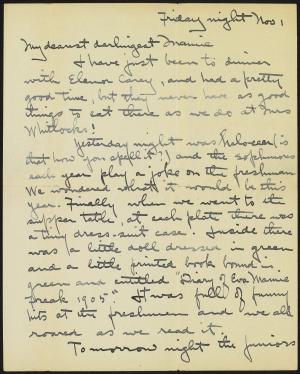 Friday night Nov 1
My dearest darlingest Mamie
I have just been to dinner
with Elanor Carey, and had a pretty
good time, but they never have as good
things to eat there as we do at Mrs
Whitlocks!
Yesterday night was (is
that how you spell it?) and the sophmores
each year play a joke on the freshmen
We wondered what it would be this
year. Finally when we went to the
supper table, at each plate there was
a tiny dress-suit case. Inside there
was a little doll dressed in green
and a little printed book bound in
green and entitled "Diary of Eva Mamie
Freak 1905". It was full of funny
hits at the freshmen and we all
roared as we read it.
Tomorrow night the juniors